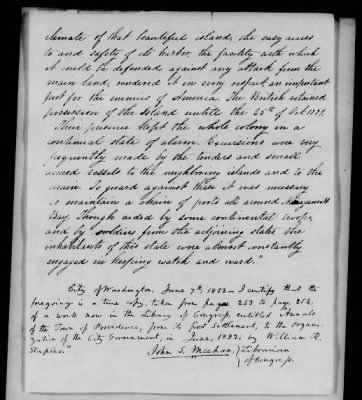 climate of that beautiful island, the easy access
to and safety of its harbor, the facility with which
it could be defended against any attack from the
main land, rendered it in every respect an important
post for the enemies of America. The British retained
possession of the Island untill the 25th of Oct 1779.
Their presence kept the whole colony in a
continual state of alarm. Excursions were very
frequently made by the tenders and small
armed vessels to the neighboring islands and to the
main. To guard against these it was necessary
to maintain a chain of posts all around Narragansett
Bay. Though aided by some continental troops,
and by soldiers from the adjoining states the
inhabitants of this state were almost constantly
engaged in keeping watch and ward."
City of Washington, June 7th, 1852 — I certify that the
foregoing is a true copy, taken from page 253 to page 254,
of a work now in the Library of Congress entitled Annals
of the Town of Providence, from its first Settlement, to the Organi-
zation of the City Government, in June, 1832; by William R.
Staples."
John S. Meehan, Librarian
of Congress.